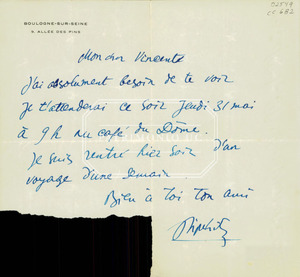 C2579
CC 682
BOULOGNE-SUR-SEINE
9, ALLÉE DES PINS
Mon cher Vincente
J'ai absolument besoin de te voir
Je t'attenderai ce soir Jeudi 31 mai
à 9 h. au café du Dôme.
Je suis rentré hier soir d'un
voyage d'une semain
Bien à toi ton ami
Lipchitz